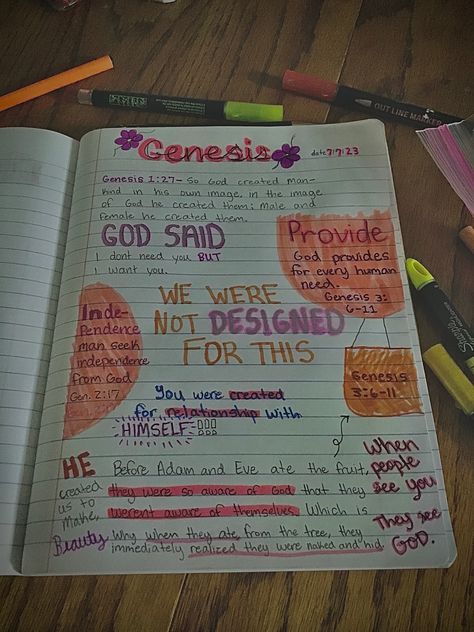 Genesis
date 7/7/23
Genesis 1:27- So God created man-
kind in his own image, in the image
of God he created them; Male and
female he created them.
GOD SAID
I dont need you BUT
I want you.
Provide
God provides
for every human
need.
Genesis 3:
6-21
WE WERE
NOT DESIGNED
FOR THIS
Inde-
Pendence
man seek
independence
from God
Gen. 2:17
You were created
for relationship with
HIMSELF
Genesis
3:6-11
HE
created
us to
Make,
Beauty
Before Adam and Eve ate the fruit,
they were so aware of God that they
werent aware of themselves. Which is
Why when they ate from the tree, they
immediately realized they were naked and hid
When
people
see you
They see
GOD.
OUT LINE MARKER
Sharpie